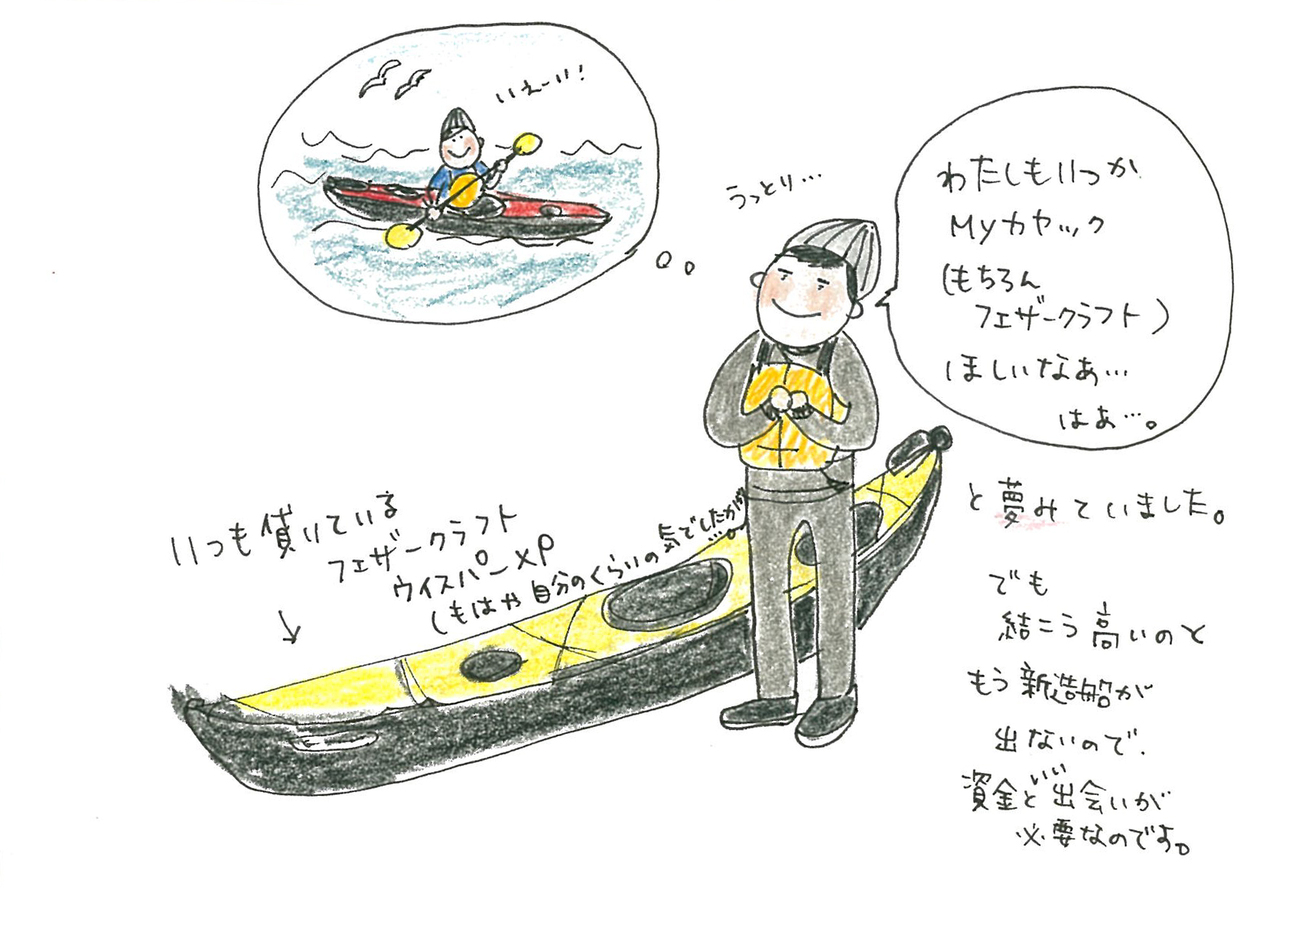 いえーい!
うっとり…
わたしもいつか
Myカヤック
(もちろん
フェザークラフト)
ほしいなあ…
はぁ…。
と夢みていました。
いつも借いている
フェザークラフト
ウイスパーXP
(もはや自分のくらいの気でしたが)
…。
でも
結こう高いのと
もう新造船が
出ないので、
資金といい出会いが
必要なのです。